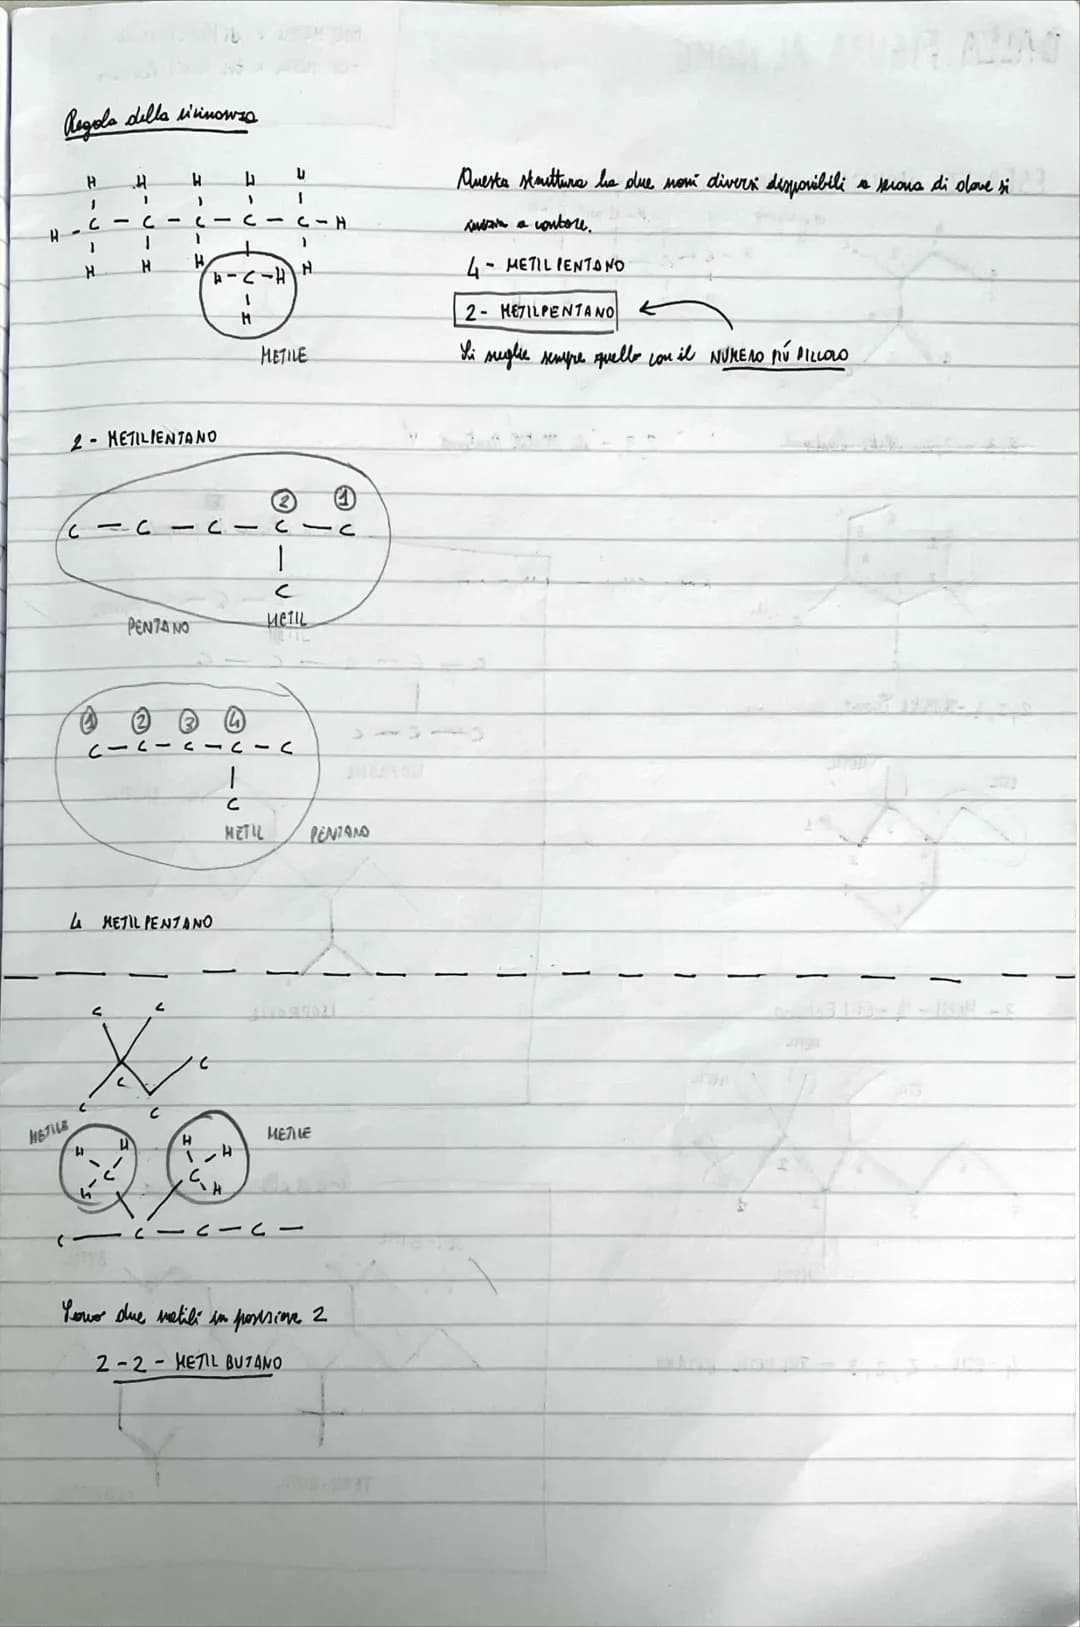 Regola della vicinanza
H H H H H
H - C - C - C - C - C - H
H H H H
H - C - H
H
METILE
Questa struttura ha due nomi diversi disponibili a di dove si
inizia a contare.
4 - METILPENTANO
2 - METILPENTANO
Si sceglie sempre quello con il NUMERO PIÚ PICCOLO
2 - METILPENTANO
2 1
C - C - C - C - C
C
PENTANO METIL
1 2 3 4
C - C - C - C - C
C
METIL PENTANO
4 METILPENTANO
C C
C C
C C
METILE METILE
H H H H
C C
H H
C - C - C - C -
Sono due metili in posizione 2
2 - 2 - METIL BUTANO